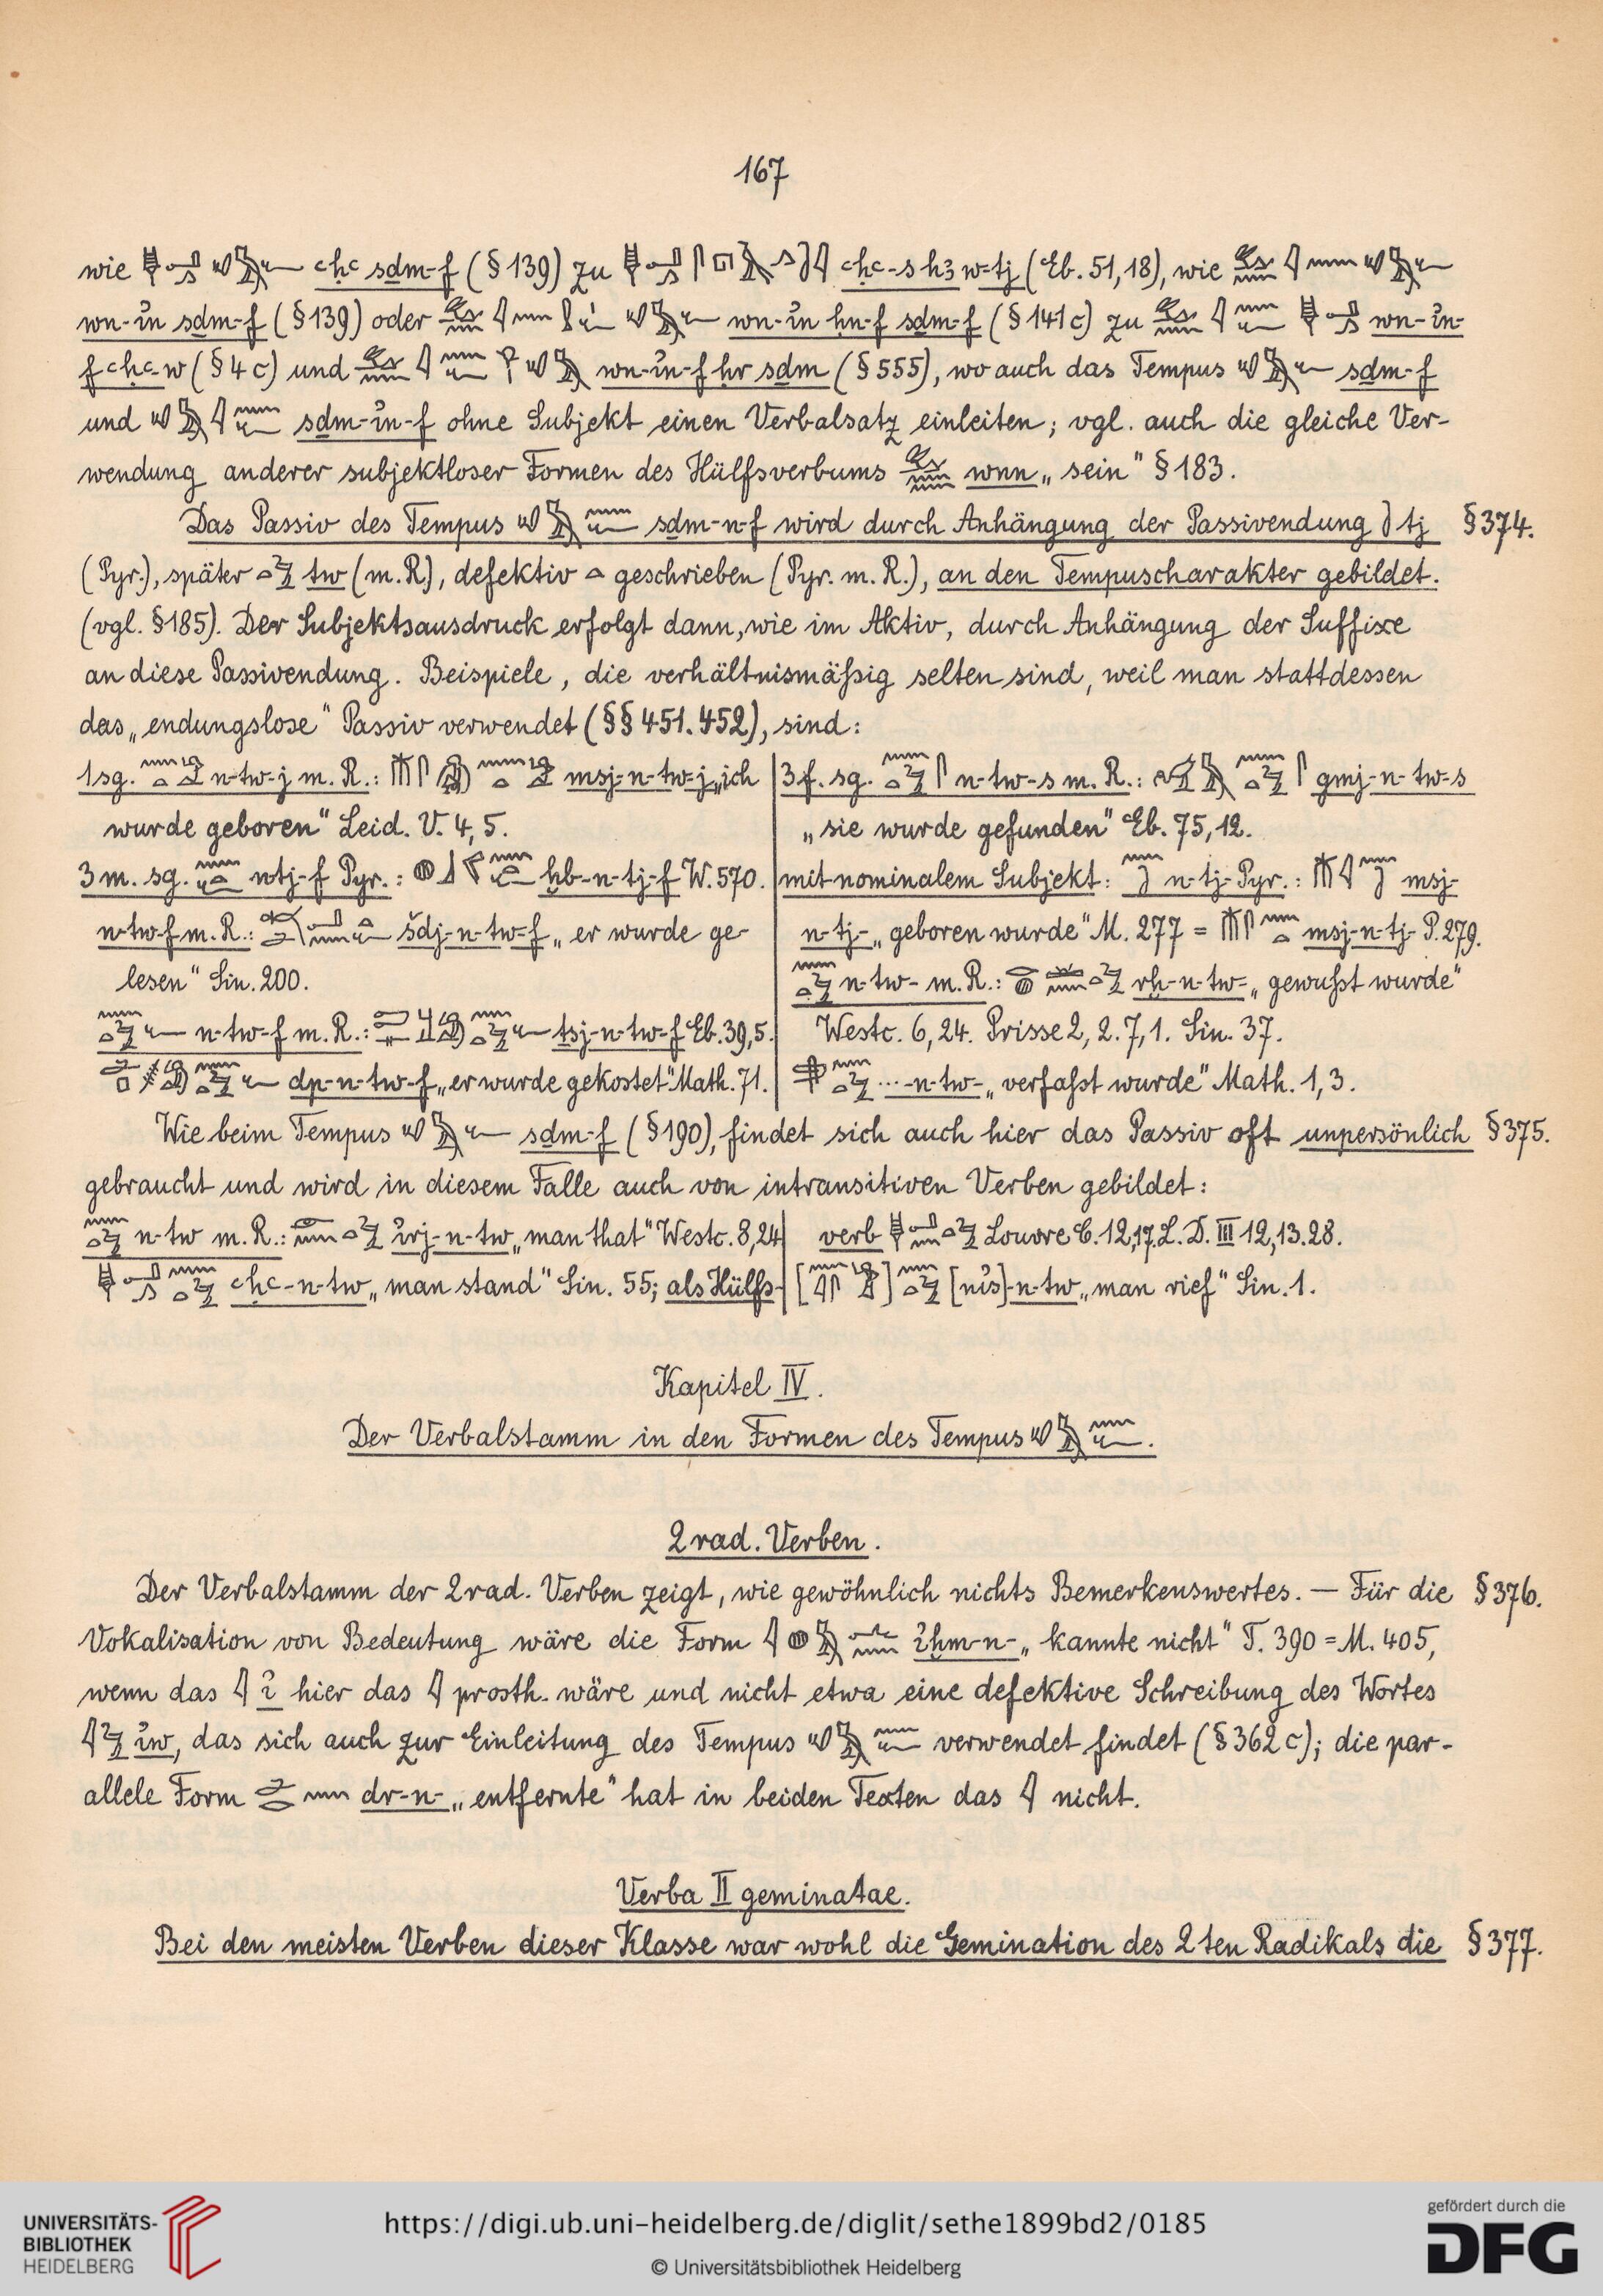 167
wie ꜥḥꜥ sḏm-f (§139) zu ꜥḥꜥ-s hꜣw-tj (Eb. 51,18), wie
wn-ỉn sḏm-f (§139) oder wn-ỉn ḥn-f sḏm-f (§141c) zu wn-ỉn-
f ꜥḥꜥw (§4c) und wn-ỉn-f ḥr sḏm (§555), wo auch das Tempus sḏm-f
und sḏm-ỉn-f ohne Subjekt einen Verbalsatz einleiten; vgl. auch die gleiche Ver-
wendung anderer subjektloser Formen des Hülfsverbums wnn „sein" §183.
Das Passiv des Tempus sḏm-n-f wird durch Anhängung der Passivendung tj §374.
(Pyr.), später tw (m. R.), defektiv geschrieben (Pyr. m. R.), an den Tempuscharakter gebildet.
(vgl. §185). Der Subjektsausdruck erfolgt dann, wie im Aktiv, durch Anhängung der Suffixe
an diese Passivendung. Beispiele, die verhältnismäßig selten sind, weil man stattdessen
das „endungslose" Passiv verwendet (§§451.452), sind:
1sg. n-tw-j m. R.: msj-n-tw-j „ich
wurde geboren" Leid. V. 4,5.
3m. sg. ntj-f Pyr.: ḫb-n-tj-f W. 570.
n-tw-f m. R.: šdj-n-tw-f „er wurde ge-
lesen" Sin. 200.
n-tw-f m. R.: ṯsj-n-tw-f Eb. 39,5.
dp-n-tw-f „er wurde gekostet" Math. 71.
3f. sg. n-tw-s m. R.: gmj-n-tw-s
„sie wurde gefunden" Eb. 75,12.
mit nominalem Subjekt: n-tj- Pyr.: msj-
n-tj- „geboren wurde" M. 277 = msj-n-tj- P. 279.
n-tw- m. R.: rḫ-n-tw- „gewußt wurde"
Westc. 6,24. Prisse 2,2. 7,1. Sin. 37.
...-n-tw- „verfaßt wurde" Math. 1,3.
Wie beim Tempus sḏm-f (§190), findet sich auch hier das Passiv oft unpersönlich §375.
gebraucht und wird in diesem Falle auch von intransitiven Verben gebildet:
n-tw m. R.: ỉrj-n-tw „man that" Westc. 8,24
ꜥḥꜥ-n-tw „man stand" Sin. 55; als Hülfs-
verb Louvre C. 12,17. L. D. III 12,13.28.
[nỉs]-n-tw „man rief" Sin. 1.
Kapitel IV.
Der Verbalstamm in den Formen des Tempus
2rad. Verben.
Der Verbalstamm der 2rad. Verben zeigt, wie gewöhnlich nichts Bemerkenswertes. — Für die §376.
Vokalisation von Bedeutung wäre die Form ỉḫm-n- „kannte nicht" T. 390 = M. 405,
wenn das ỉ hier das prosth. wäre und nicht etwa eine defektive Schreibung des Wortes
ỉw, das sich auch zur Einleitung des Tempus verwendet findet (§362c); die par-
allele Form dr-n- „entfernte" hat in beiden Texten das nicht.
Verba II geminatae.
Bei den meisten Verben dieser Klasse war wohl die Gemination des 2ten Radikals die §377.
UNIVERSITÄTS-
BIBLIOTHEK
HEIDELBERG
https://digi.ub.uni-heidelberg.de/diglit/sethe1899bd2/0185
© Universitätsbibliothek Heidelberg
gefördert durch die
DFG